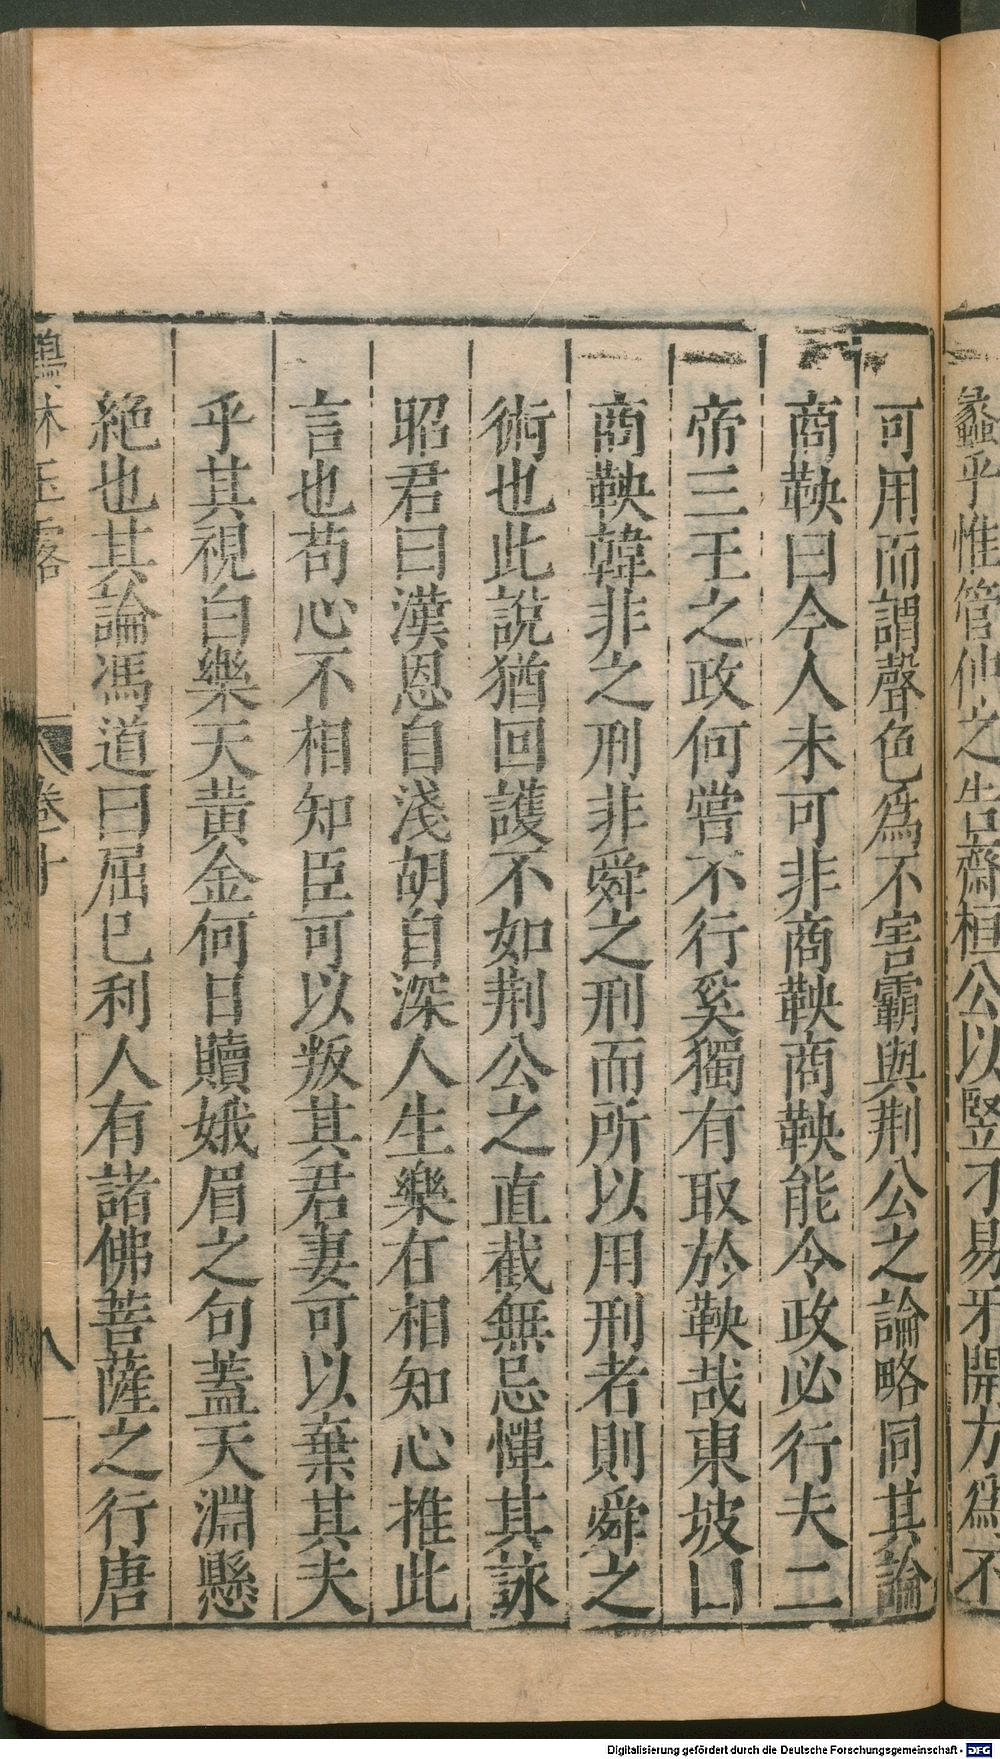 蠡乎惟管仲之告齊桓公以豎刁易牙開方爲不
可用而謂聲色爲不害霸與荆公之論略同其論
商鞅曰今人未可非商鞅商鞅能令政必行夫二
帝三王之政何嘗不行奚獨有取於鞅哉東坡曰
商鞅韓非之刑非舜之刑而所以用刑者則舜之
術也此說猶回護不如荆公之直截無忌憚其詠
昭君曰漢恩自淺胡自深人生樂在相知心推此
言也苟心不相知臣可以叛其君妻可以棄其夫
乎其視白樂天黃金何日贖娥眉之句蓋天淵懸
絶也其論馮道曰屈已利人有諸佛菩薩之行唐
鶴林玉露
卷十
八
Digitalisierung gefördert durch die Deutsche Forschungsgemeinschaft - DFG